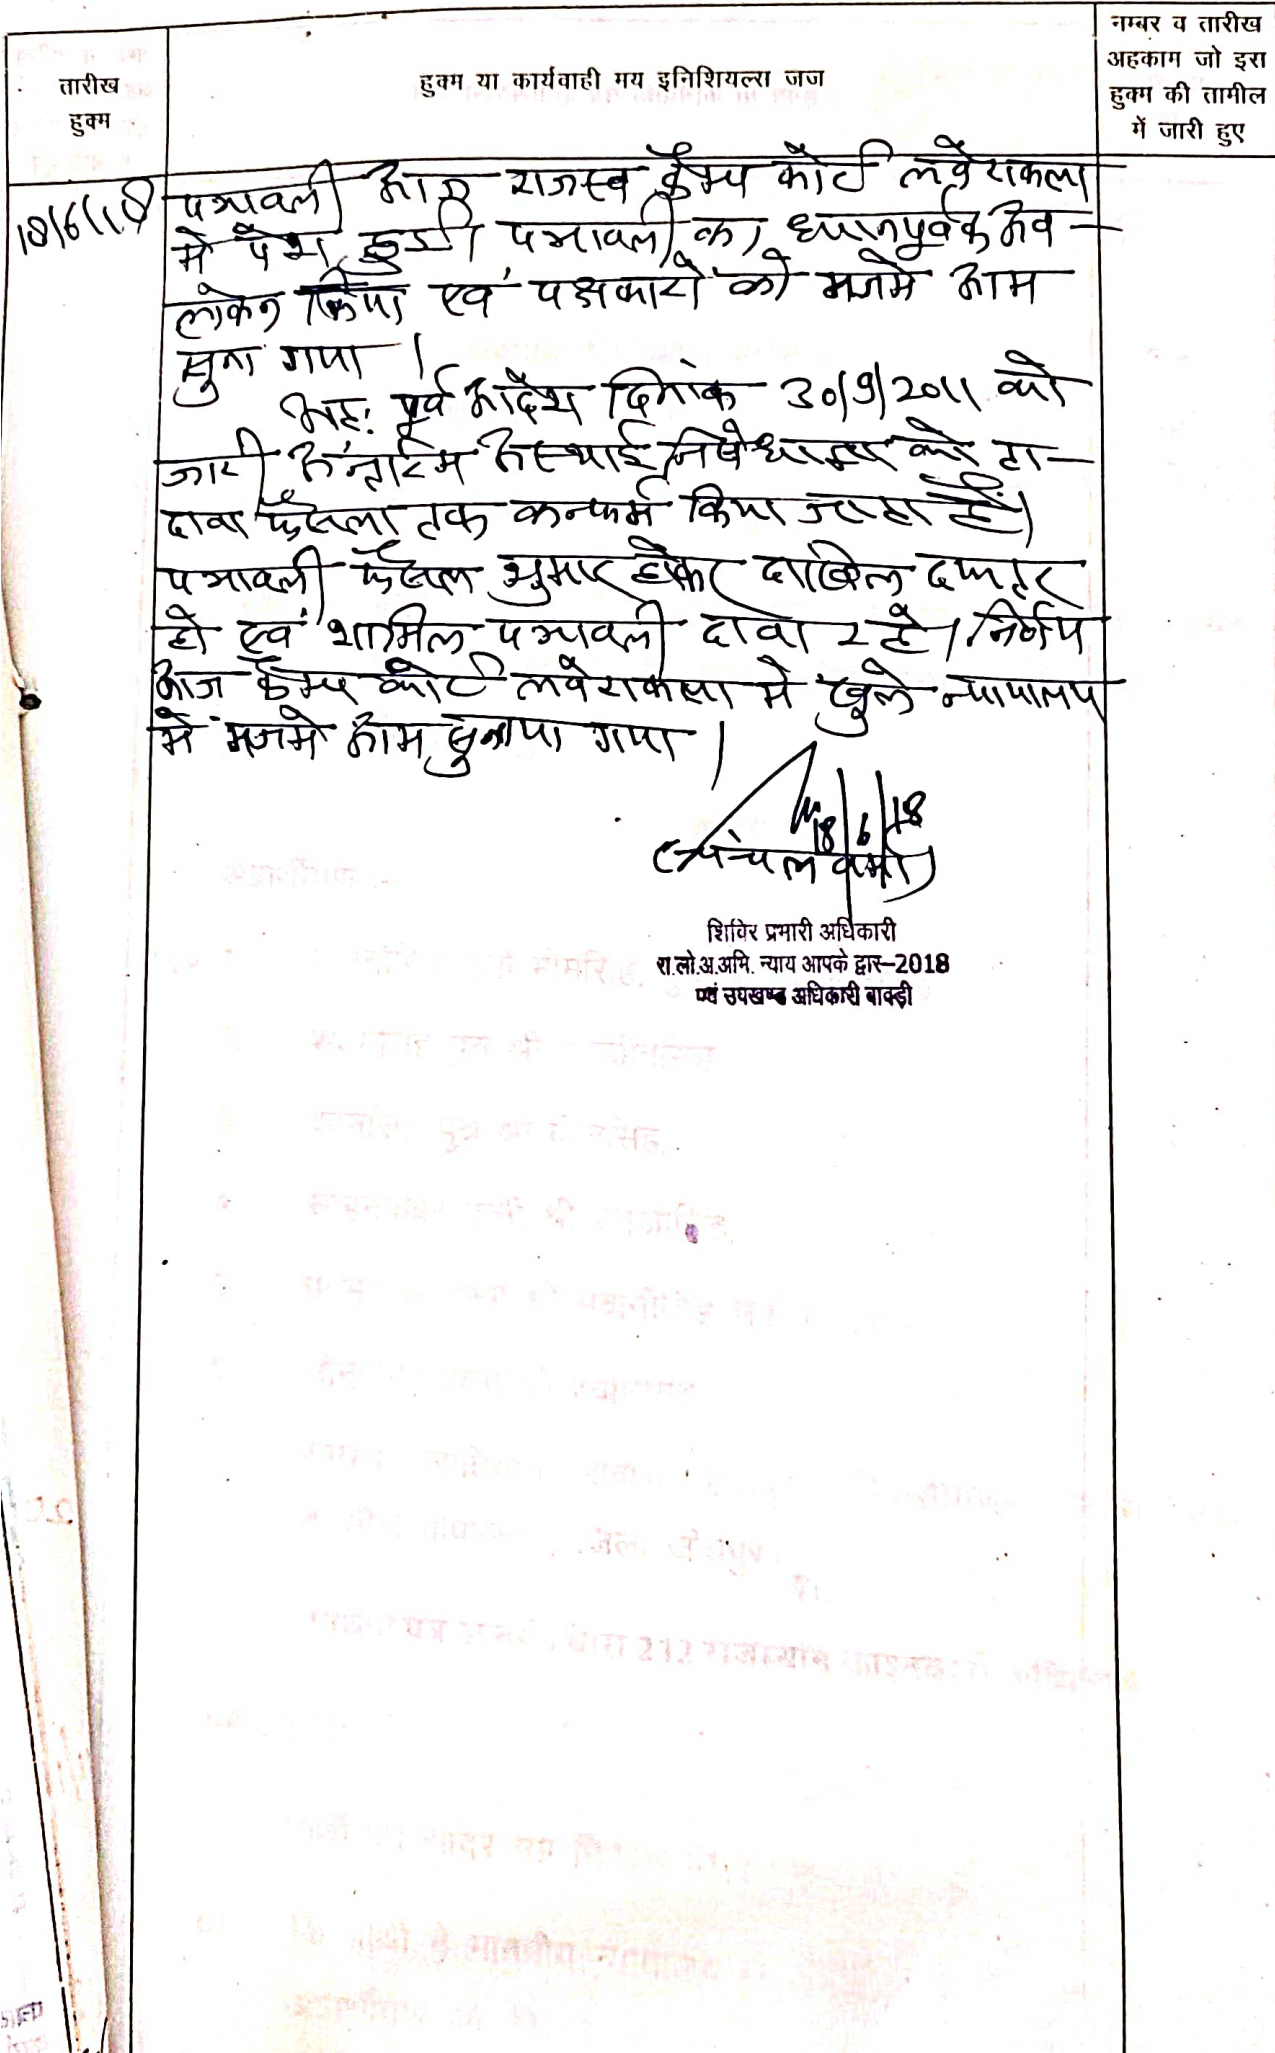 तारीख
हुक्म
हुक्म या कार्यवाही मय इनिशियल्स जज
नम्बर व तारीख
अहकाम जो इस
हुक्म की तामील
में जारी हुए
18/6/18
पत्रावली आज राजस्व कैम्प कोर्ट लवेराकला
में पेश हुई। पत्रावली का ध्यानपूर्वक अव-
लोकन किया एवं पक्षकारो को मजमे आम
सुना गया।
अतः पूर्व आदेश दिनांक 30/9/2011 को
जारी अन्तरिम अस्थाई निषेधाज्ञा को ता-
दावा फैसला तक कन्फर्म किया जाता है।
पत्रावली फैसल शुमार होकर दाखिल दफ्तर
हो एवं शामिल पत्रावली दावा रहे। निर्णय
आज कैम्प कोर्ट लवेराकला में खुले न्यायालय
में मजमे आम सुनाया गया।
18/6/18
(चंचल वर्मा)
शिविर प्रभारी अधिकारी
रा.लो.अ.अभि. न्याय आपके द्वार-2018
एवं उपखण्ड अधिकारी बावड़ी